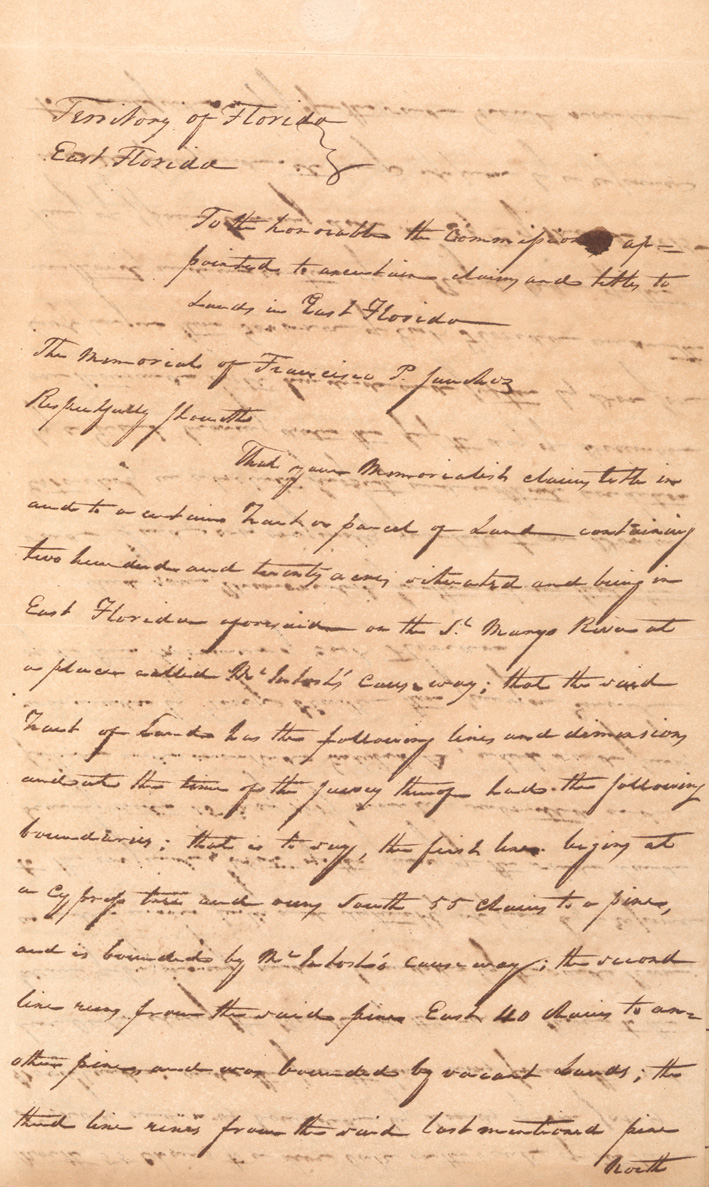 Territory of Florida }
East Florida
To the honorable the Commissioners ap=
pointed to ascertain claims and titles to
Lands in East Florida
The Memorial of Francisco P. Sanchez
Respectfully Showeth
That your Memorialist claims title in
and to a certain Tract or parcel of Land containing
two hundred and twenty acres situated and being in
East Florida aforesaid on the St. Marys River at
a place called McIntosh's causeway; that the said
Tract of Land has the following lines and dimensions
and at the time of the survey thereof had the following
boundaries; that is to say, the first line begins at
a Cypress tree and runs South 55 Chains to a pine,
and is bounded by McIntosh's causeway; the second
line runs from the said pine East 40 chains to an=
other pine, and was bounded by vacant Lands; the
third line runs from the said last mentioned pine
North